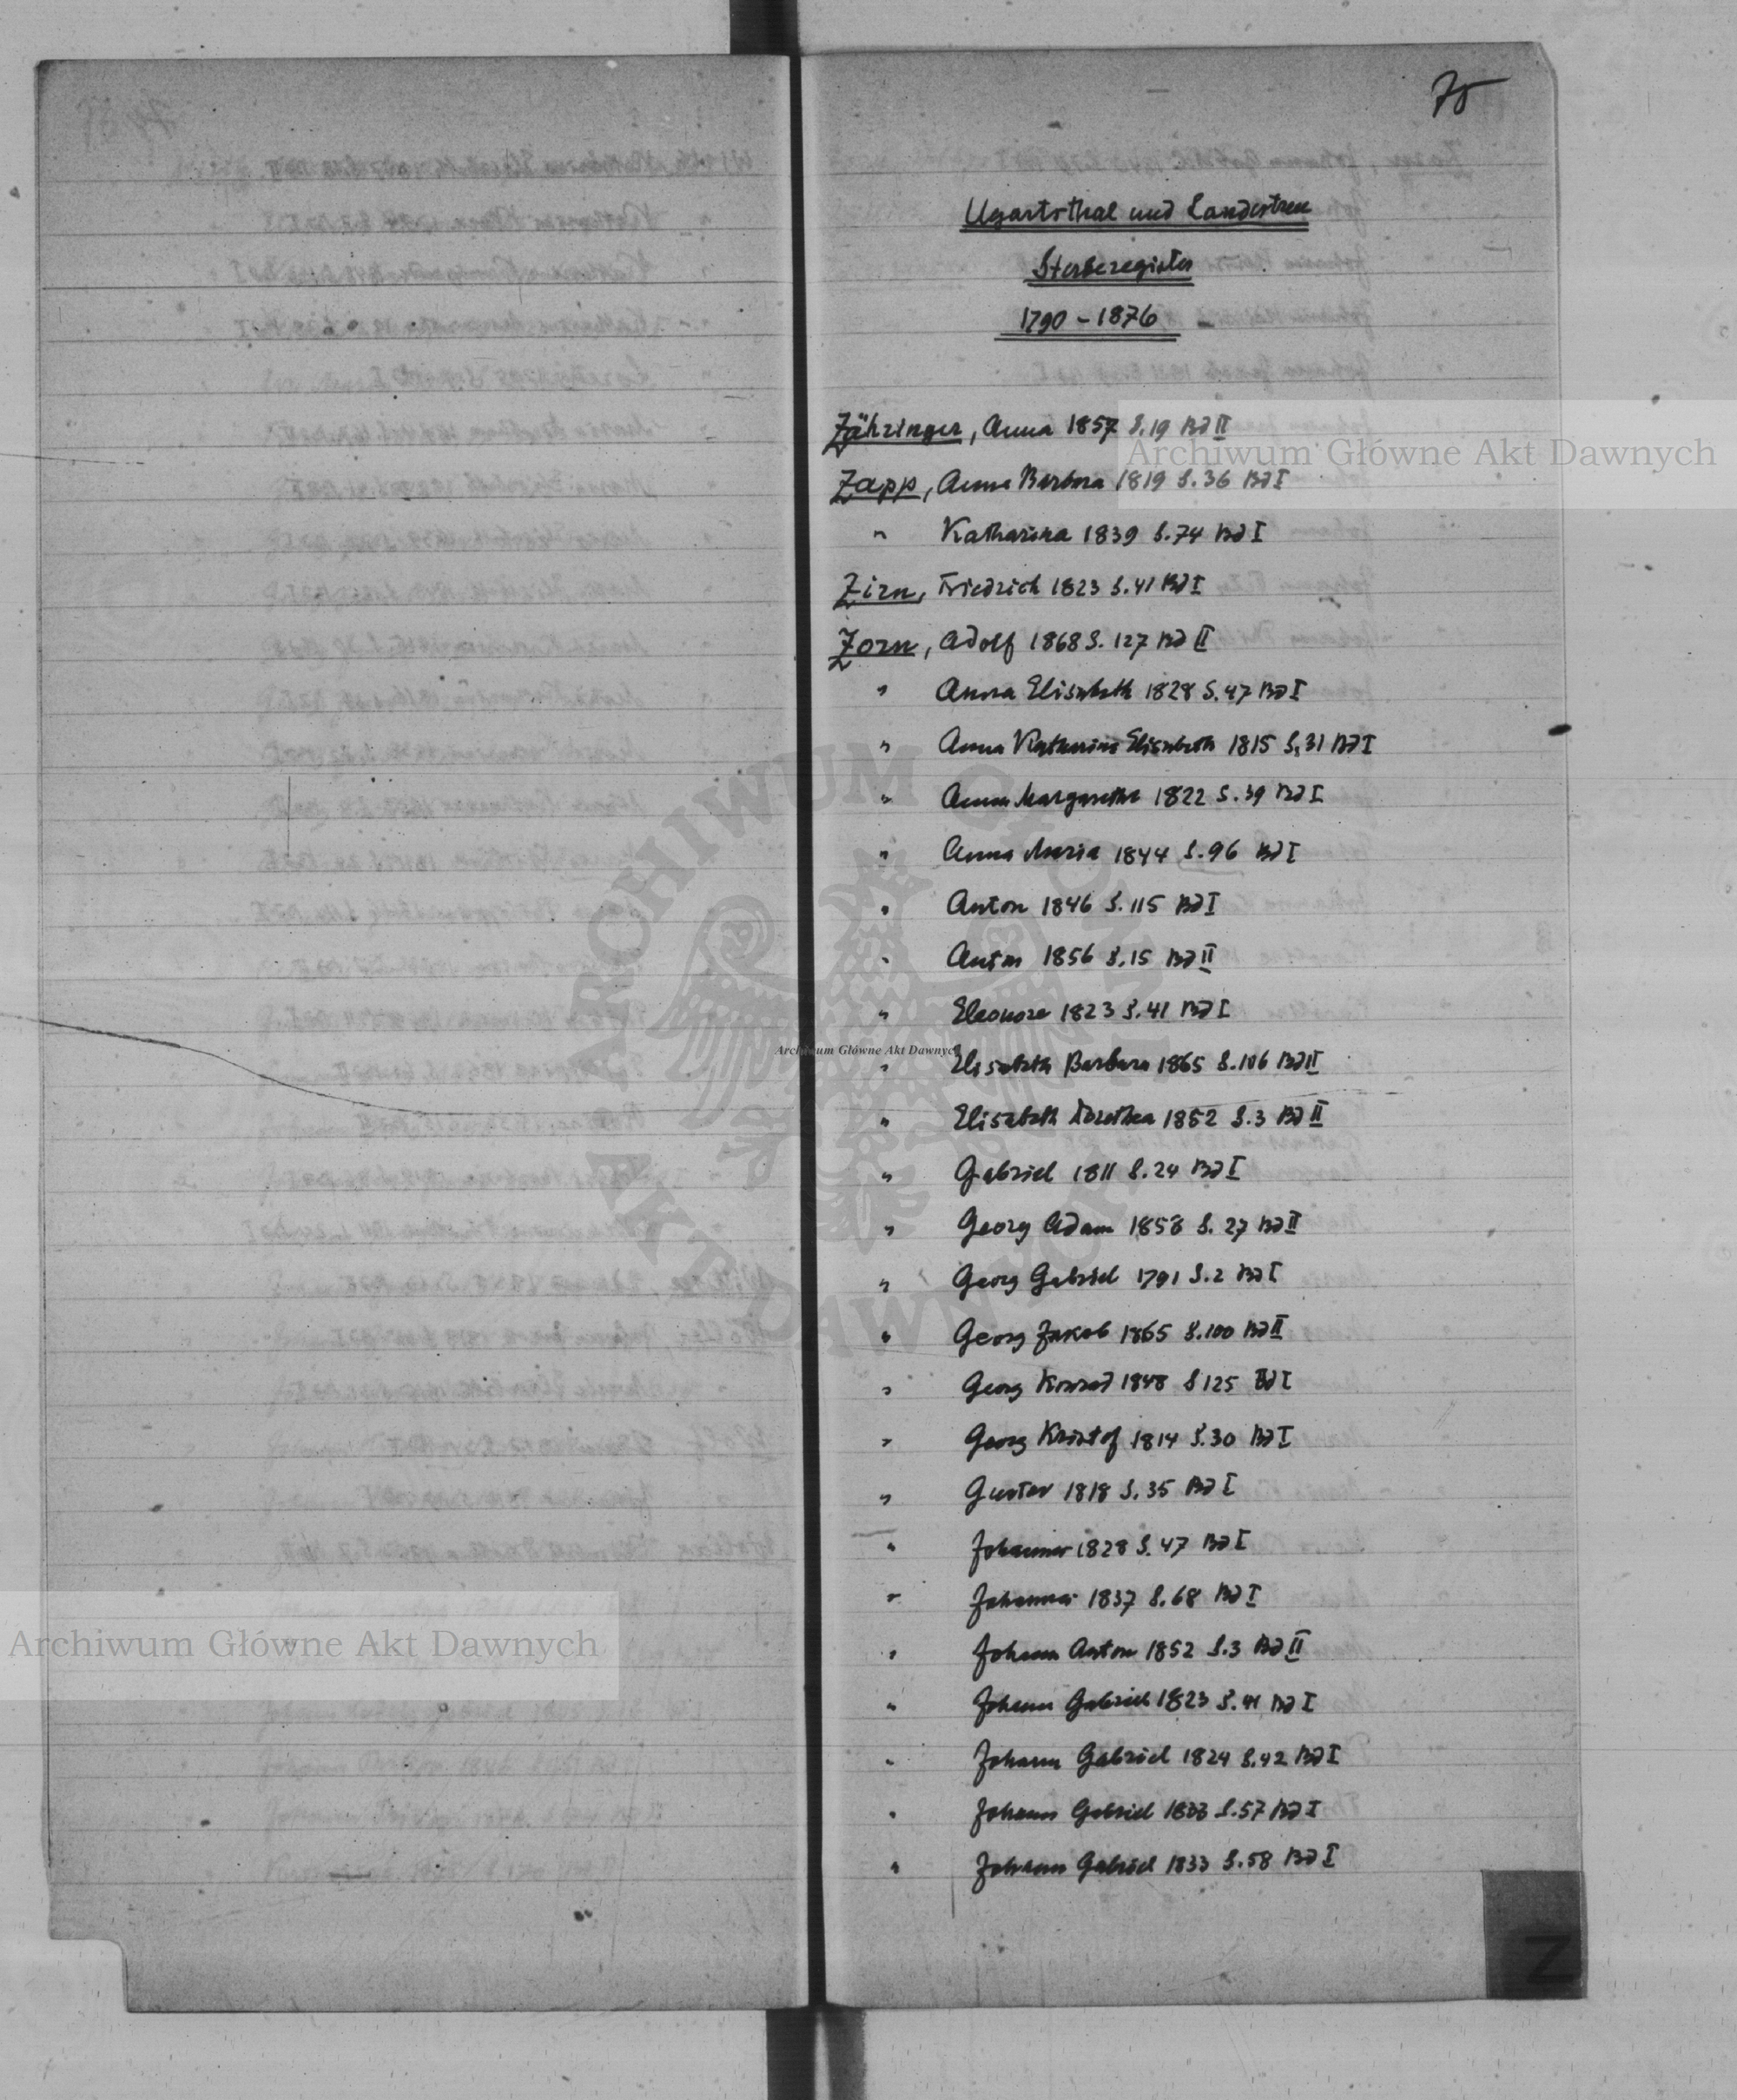 75
Ugartsthal und Landestreu
Sterberegister
1790 - 1876
Zähringer, Anna 1857 S.19 Bd II
Archiwum Główne Akt Dawnych
Zapp, Anna Barbara 1819 S.36 Bd I
" Katharina 1839 S.74 Bd I
Zirn, Friedrich 1823 S.41 Bd I
Zorn, Adolf 1868 S.127 Bd II
" Anna Elisabeth 1828 S.47 Bd I
" Anna Katharina Elisabeth 1815 S.31 Bd I
" Anna Margaretha 1822 S.39 Bd I
" Anna Maria 1844 S.96 Bd I
" Anton 1846 S.115 Bd I
" Anton 1856 S.15 Bd II
" Eleonore 1823 S.41 Bd I
Archiwum Główne Akt Dawnych
" Elisabeth Barbara 1865 S.106 Bd II
" Elisabeth Dorothea 1852 S.3 Bd II
" Gabriel 1811 S.24 Bd I
" Georg Adam 1858 S.27 Bd II
" Georg Gabriel 1791 S.2 Bd I
" Georg Jakob 1865 S.100 Bd II
" Georg Konrad 1848 S 125 Bd I
" Georg Kristof 1814 S.30 Bd I
" Gustav 1818 S.35 Bd I
" Johannes 1828 S.47 Bd I
" Johannes 1837 S.68 Bd I
" Johann Anton 1852 S.3 Bd II
Archiwum Główne Akt Dawnych
" Johann Gabriel 1823 S.41 Bd I
" Johann Gabriel 1824 S.42 Bd I
" Johann Gabriel 1833 S.57 Bd I
" Johann Gabriel 1833 S.58 Bd I
Z
ARCHIWUM GŁÓWNE
AKT DAWNYCH